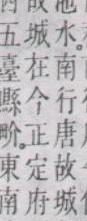 池水。南行唐故城
故城在今正定府
西五臺縣畍。東南